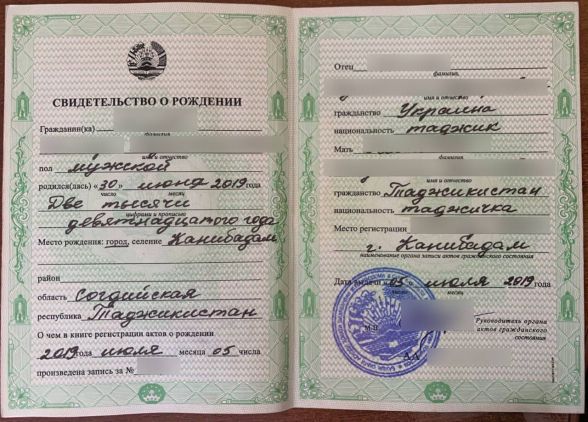 СВИДЕТЕЛЬСТВО О РОЖДЕНИИ
Гражданин(ка)
фамилия
имя и отчество
пол мужской
родился(лась) «30» июня 2019 года
число месяц
Две тысячи
цифрами и прописью
девятнадцатого года
Место рождения: город, селение Канибадам
район
область Согдийская
республика Таджикистан
О чем в книге регистрации актов о рождении
2019 года июля месяца 05 числа
произведена запись за №
Отец
фамилия,
имя и отчество
гражданство Украина
национальность таджик
Мать
фамилия,
имя и отчество
гражданство Таджикистан
национальность таджичка
Место регистрации
г. Канибадам
наименование органа записи актов гражданского состояния
Дата выдачи «05» июля 2019 года
М.П.
Руководитель органа
актов гражданского
состояния